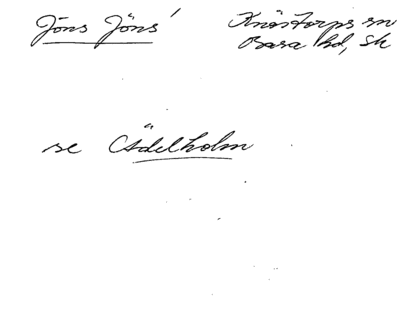 Jöns Jöns' Knästorps sn
Bara hd, Sk
se Ädelholm